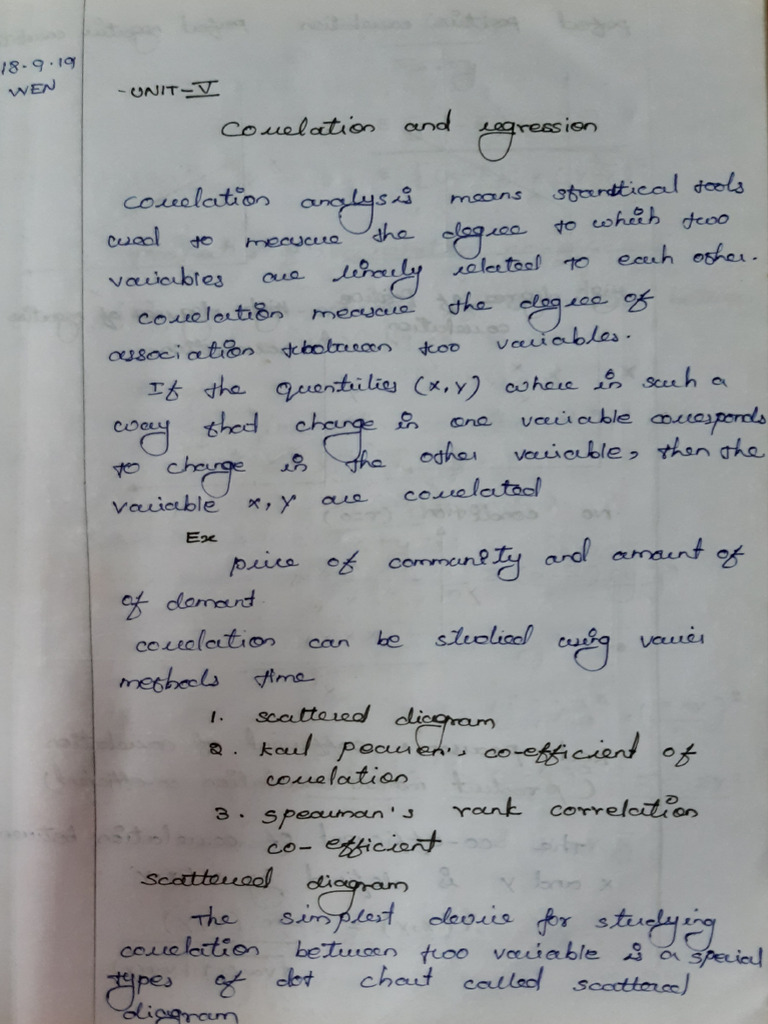 18.9.19
WEN
-UNIT-V
Correlation and regression
correlation analysis means stantical tools
used to measure the degree to which two
variables are linearly related to each other.
correlation measure the degree of
association between two variables.
If the quentities (x,y) where in such a
way that change in one variable corresponds
to change in the other variable, then the
variable x, y are correlated
Ex
price of community and amount of
of demant.
correlation can be studied using varies
methods time
1. scattered diagram
2. karl pearson's co-efficient of
correlation
3. spearman's rank correlation
co-efficient
scattered diagram
The simplest device for studying
correlation between two variable is a special
types of dot chart called scattered
diagram